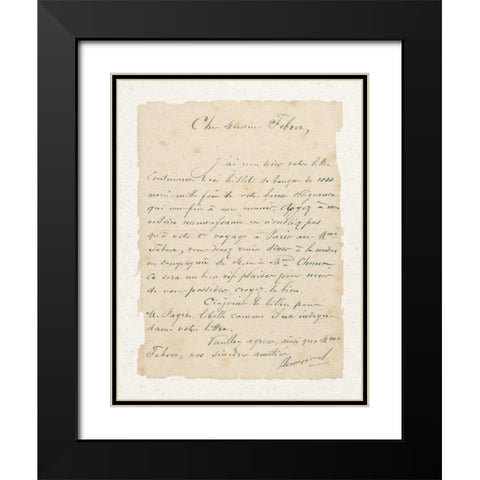 Cher Monsieur Febvre,
J'ai reçu hier votre lettre
contenant trois billets de banque de 1000
merci mille fois de votre bonne obligeance
qui me fin à une ennui. Croyez à mon
entière reconnaissance et n'oubliez pas
qu'à votre 1er voyage à Paris avec Mme
Febvre, vous devez venir dîner à la maison
en compagnie de M. et de Mme
Ce sera un bien vif plaisir pour nous
de vous posséder, croyez-le bien.
Ci-joint le billet pour
M. libellé comme il est indiqué
dans votre lettre.
Veuillez agréer, ainsi que Mme
Febvre, nos sincères amitiés